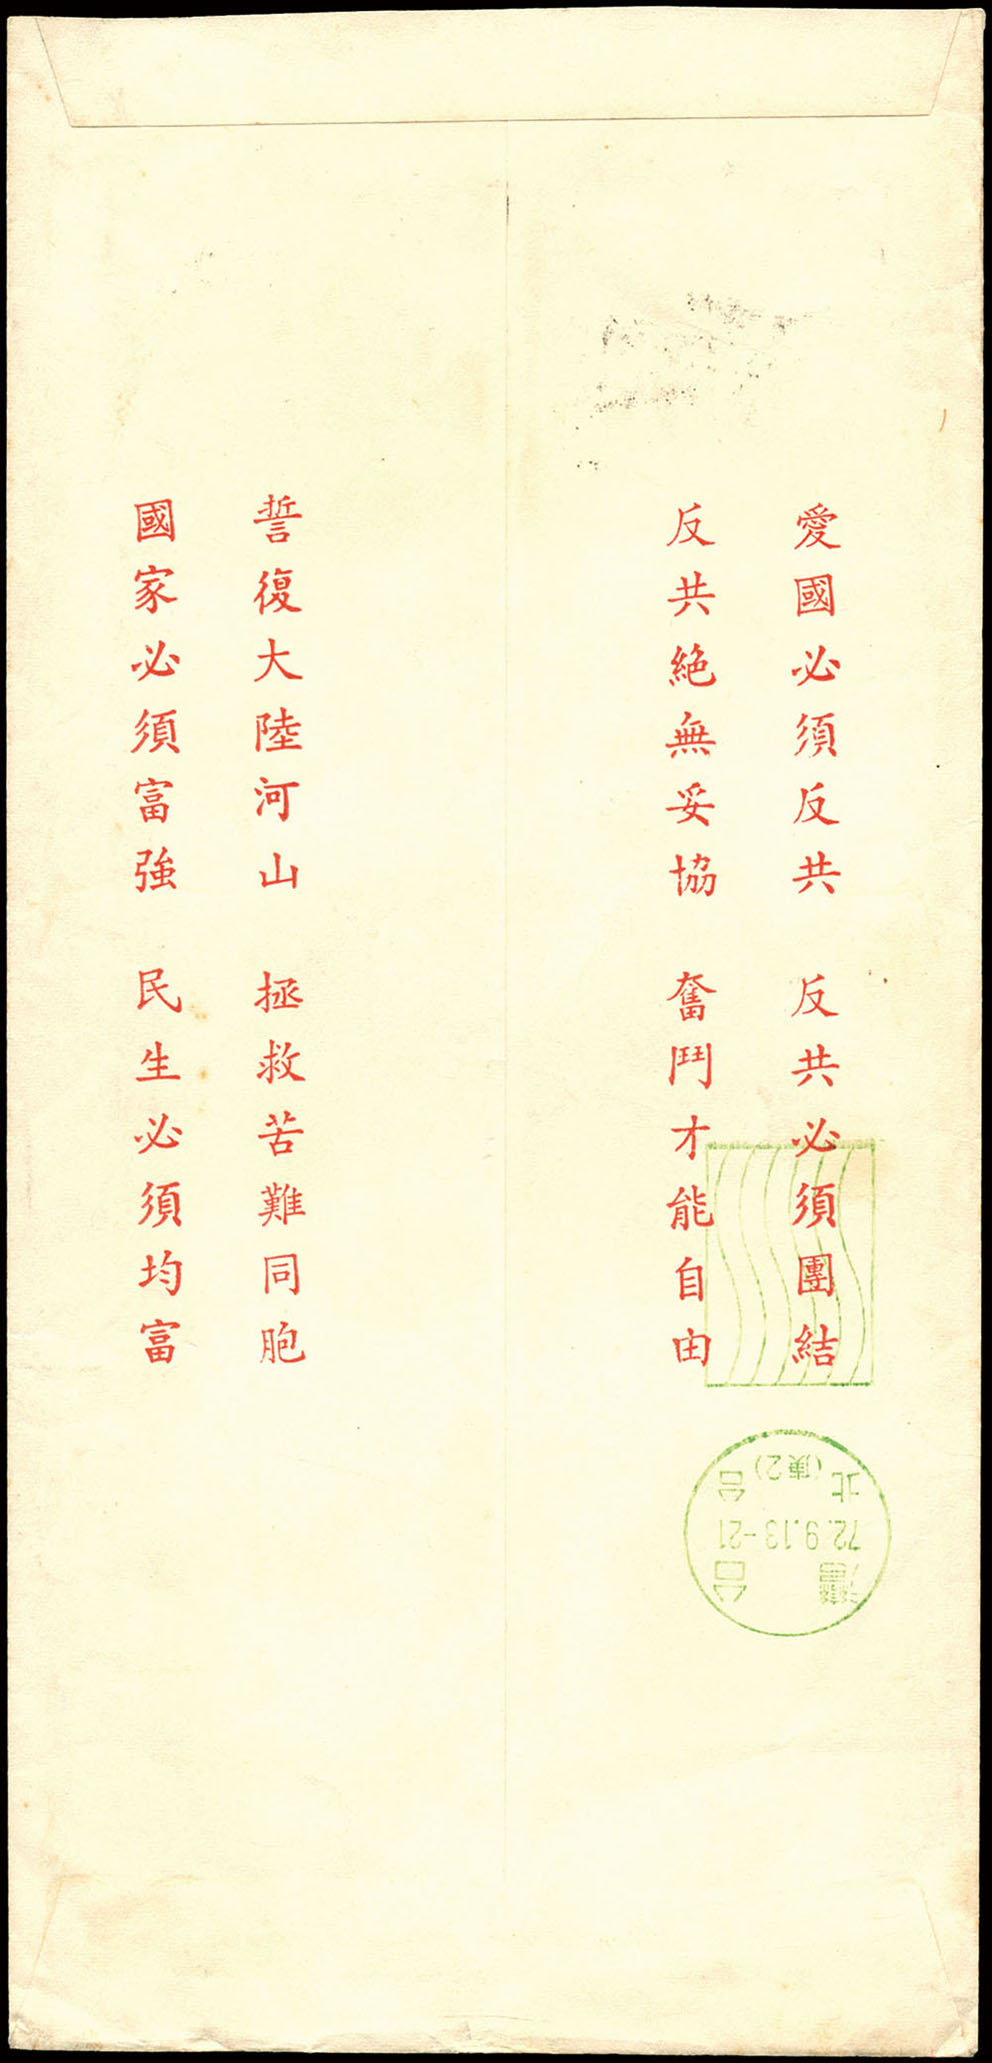 愛國必須反共　反共必須團結
反共絕無妥協　奮鬥才能自由
誓復大陸河山　拯救苦難同胞
國家必須富強　民生必須均富
台灣
72.9.13-21
台北
(庚2)